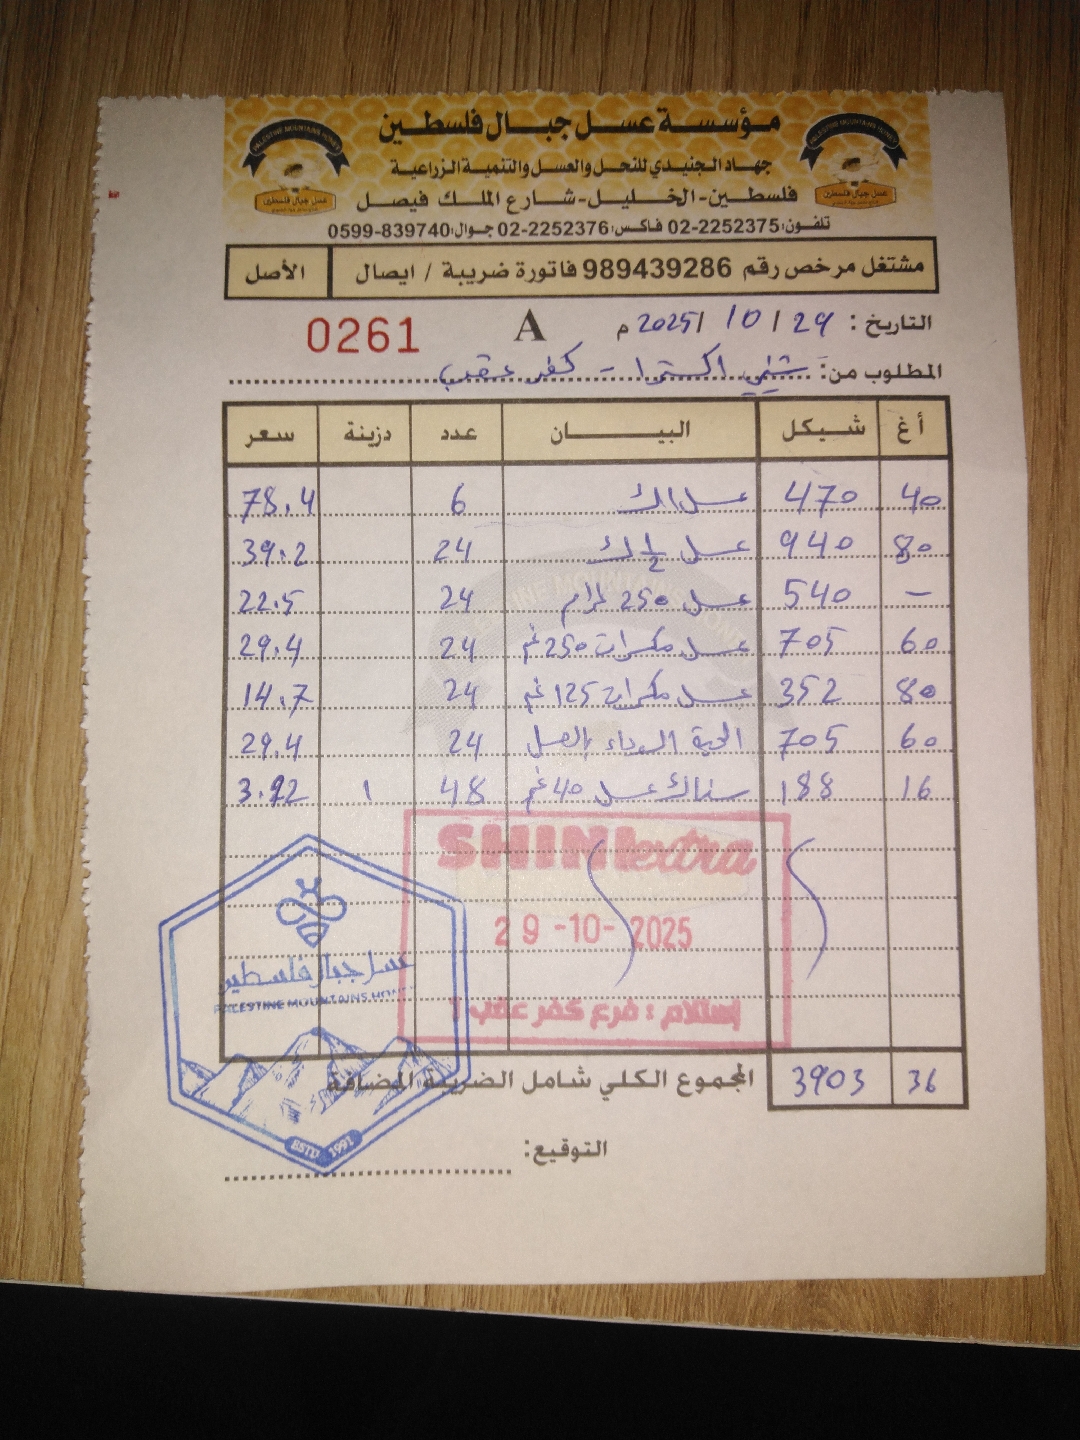 مؤسسة عسل جبال فلسطين
جهاد الجنيدي للنحل والعسل والتنمية الزراعية
فلسطين-الخليل-شارع الملك فيصل
تلفون:02-2252375 فاكس:02-2252376 جوال:0599-839740
PALESTINE MOUNTAINS HONEY
عسل جبال فلسطين
PALESTINE MOUNTAINS HONEY
عسل جبال فلسطين
مشتغل مرخص رقم 989439286 فاتورة ضريبة / ايصال الأصل
التاريخ: 29 / 10 / 2025 م A 0261
المطلوب من: شني اكسترا - كفر عقب
أغ شيكل البيــــان عدد دزينة سعر
40 470 عسل 1ك 6 78.4
80 940 عسل ½ ك 24 39.2
- 540 عسل 250 غرام 24 22.5
60 705 عسل مكسرات 250 غم 24 29.4
80 352 عسل مكسرات 125 غم 24 14.7
60 705 الحبة السوداء بالعسل 24 29.4
16 188 سناك عسل 40 غم 48 1 3.92
SHINI extra
29-10-2025
إستلام : فرع كفر عقب 1
عسل جبال فلسطين
PALESTINE MOUNTAINS HONEY
ESTD 1991
المجموع الكلي شامل الضريبة المضافة 3903 36
التوقيع: